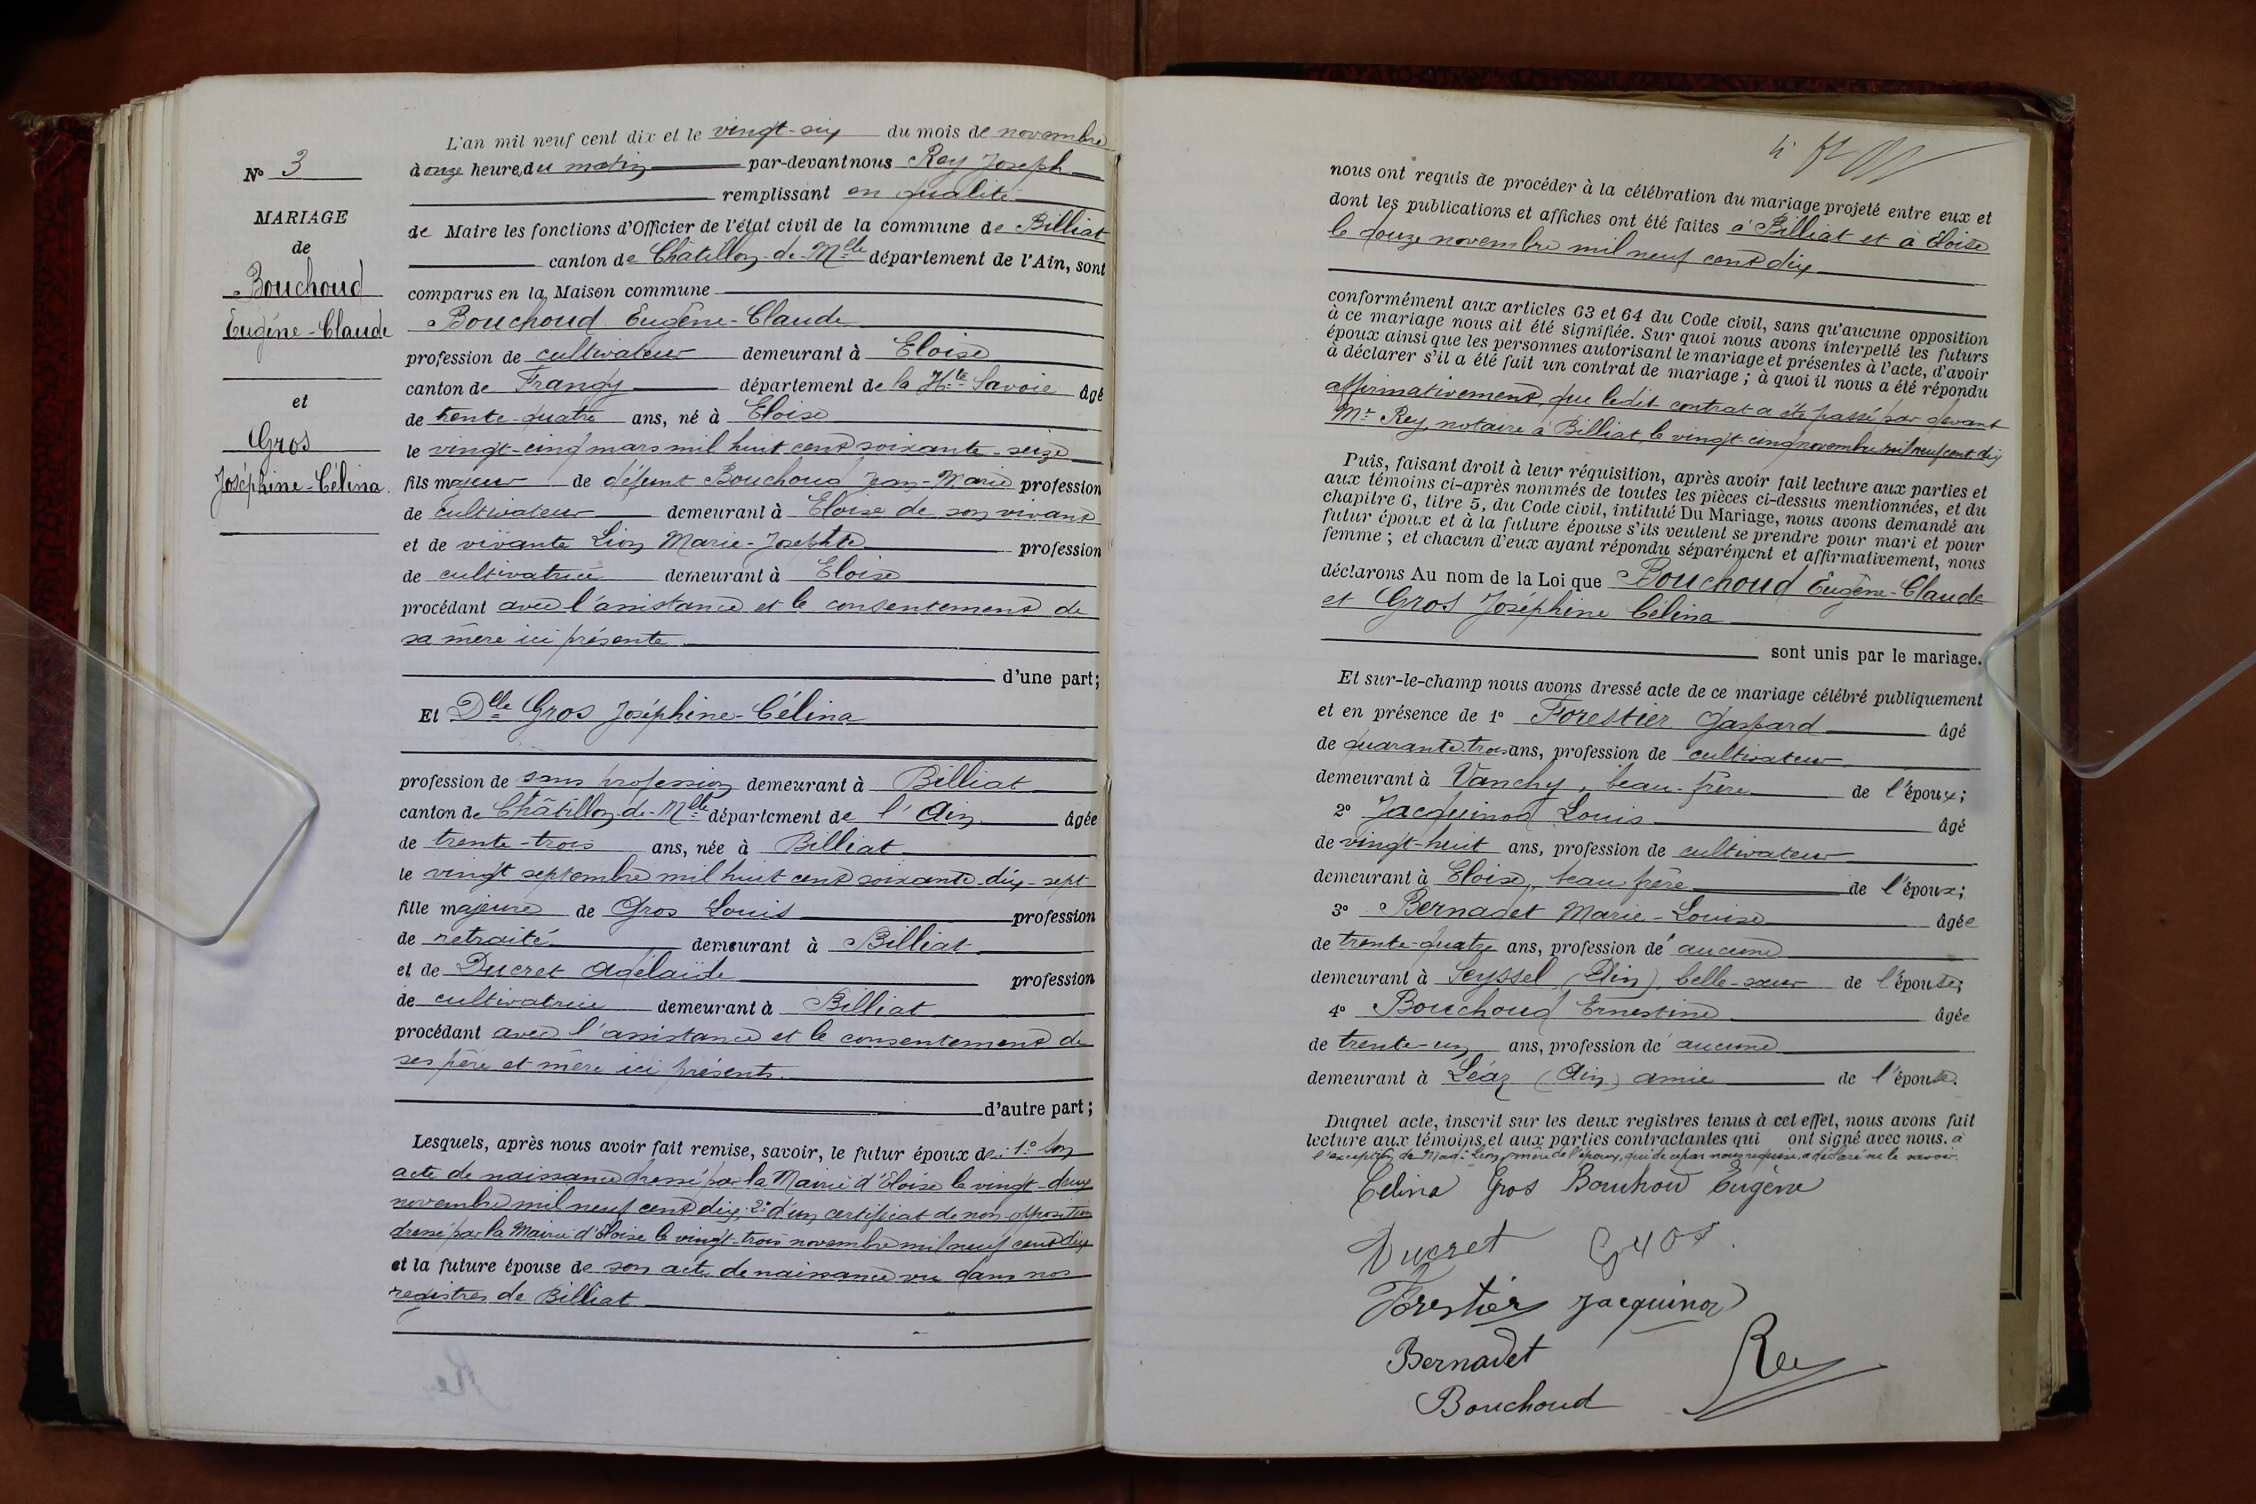 N° 3
MARIAGE
de
Bouchoud
Eugène-Claude
et
Gros
Joséphine-Célina.
L'an mil neuf cent dix et le vingt-six du mois de novembre
à onze heures du matin par-devant nous Rey Joseph
remplissant en qualité
de Maire les fonctions d'Officier de l'état civil de la commune de Billiat
canton de Châtillon-de-Mlle département de l'Ain, sont
comparus en la Maison commune
Bouchoud Eugène-Claude
profession de cultivateur demeurant à Eloise
canton de Frangy département de la Hte Savoie âgé
de trente-quatre ans, né à Eloise
le vingt-cinq mars mil huit cent soixante-seize
fils majeur de défunt Bouchoud Jean-Marie profession
de cultivateur demeurant à Eloise de son vivant
et de vivante Lion Marie-Josephte profession
de cultivatrice demeurant à Eloise
procédant avec l'assistance et le consentement de
sa mère ici présente
d'une part;
Et Dlle Gros Joséphine-Célina
profession de sans profession demeurant à Billiat
canton de Châtillon-de-Mlle département de l'Ain âgée
de trente-trois ans, née à Billiat
le vingt septembre mil huit cent soixante-dix-sept
fille majeure de Gros Louis profession
de retraité demeurant à Billiat
et de Ducret Adélaïde profession
de cultivatrice demeurant à Billiat
procédant avec l'assistance et le consentement de
ses père et mère ici présents.
d'autre part;
Lesquels, après nous avoir fait remise, savoir, le futur époux de: 1° Son
acte de naissance dressé par la Mairie d'Eloise le vingt-deux
novembre mil neuf cent dix; 2° d'un certificat de non-opposition
dressé par la Mairie d'Eloise le vingt-trois novembre mil neuf cent dix
et la future épouse de son acte de naissance vu dans nos
registres de Billiat
nous ont requis de procéder à la célébration du mariage projeté entre eux et
dont les publications et affiches ont été faites à Billiat et à Eloise
le douze novembre mil neuf cent dix
conformément aux articles 63 et 64 du Code civil, sans qu'aucune opposition
à ce mariage nous ait été signifiée. Sur quoi nous avons interpellé les futurs
époux ainsi que les personnes autorisant le mariage et présentes à l'acte, d'avoir
à déclarer s'il a été fait un contrat de mariage; à quoi il nous a été répondu
affirmativement, que ledit contrat a été passé par devant
Mr Rey, notaire à Billiat le vingt-cinq novembre mil neuf cent dix
Puis, faisant droit à leur réquisition, après avoir fait lecture aux parties et
aux témoins ci-après nommés de toutes les pièces ci-dessus mentionnées, et du
chapitre 6, titre 5, du Code civil, intitulé Du Mariage, nous avons demandé au
futur époux et à la future épouse s'ils veulent se prendre pour mari et pour
femme; et chacun d'eux ayant répondu séparément et affirmativement, nous
déclarons Au nom de la Loi que Bouchoud Eugène-Claude
et Gros Joséphine Célina
sont unis par le mariage.
Et sur-le-champ nous avons dressé acte de ce mariage célébré publiquement
et en présence de 1° Forestier Gaspard âgé
de quarante-trois ans, profession de cultivateur
demeurant à Vanchy, beau-frère de l'époux;
2° Jacquinod Louis âgé
de vingt-huit ans, profession de cultivateur
demeurant à Eloise, beau frère de l'époux;
3° Bernadet Marie-Louise âgée
de trente-quatre ans, profession de aucune
demeurant à Seyssel (Ain), belle-sœur de l'épouse;
4° Bouchoud Ernestine âgée
de trente-un ans, profession de aucune
demeurant à Léaz (Ain) amie de l'épouse.
Duquel acte, inscrit sur les deux registres tenus à cet effet, nous avons fait
lecture aux témoins et aux parties contractantes qui ont signé avec nous. à
l'exception de Mad. Lion, mère de l'époux, qui de ce par nous requise, a déclaré ne le savoir.
Célina Gros Bouchoud Eugène
Ducret Gros
Forestier Jacquinod
Bernadet Rey
Bouchoud